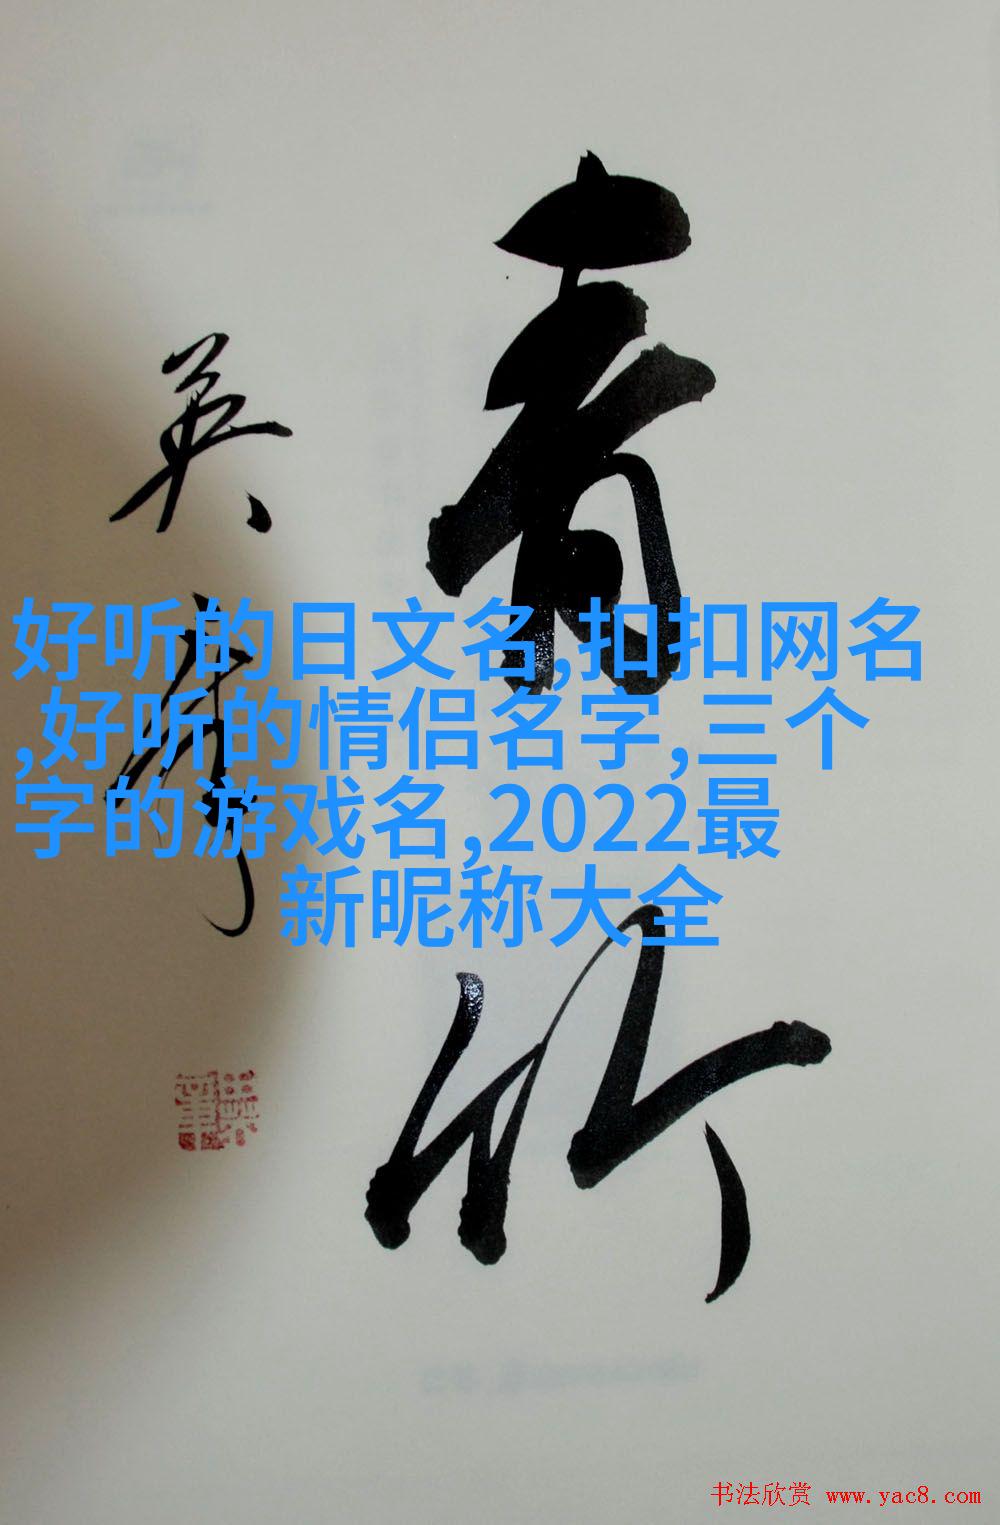 竹
英
好听的日文名,扣扣网名
,好听的情侣名字,三个
字的游戏名,2022最
新昵称大全
书法欣赏 www.yac8.com